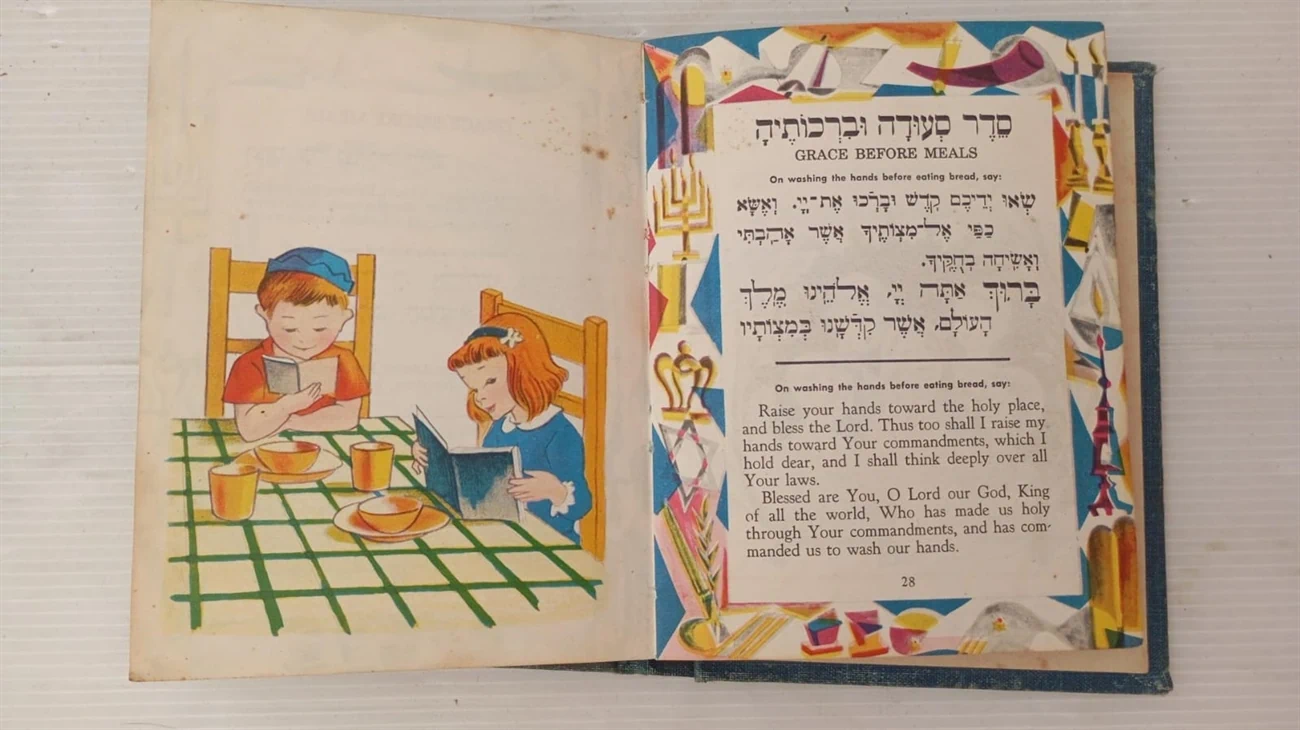 סֵדֶר סְעוּדָה וּבִרְכוֹתֶיהָ
GRACE BEFORE MEALS
On washing the hands before eating bread, say:
שְׂאוּ יְדֵיכֶם קֹדֶשׁ וּבָרְכוּ אֶת־יְיָ. וְאֶשָּׂא
כַפַּי אֶל־מִצְוֹתֶיךָ אֲשֶׁר אָהַבְתִּי
וְאָשִׂיחָה בְחֻקֶּיךָ.
בָּרוּךְ אַתָּה יְיָ, אֱלֹהֵינוּ מֶלֶךְ
הָעוֹלָם, אֲשֶׁר קִדְּשָׁנוּ בְּמִצְוֹתָיו
On washing the hands before eating bread, say:
Raise your hands toward the holy place,
and bless the Lord. Thus too shall I raise my
hands toward Your commandments, which I
hold dear, and I shall think deeply over all
Your laws.
Blessed are You, O Lord our God, King
of all the world, Who has made us holy
through Your commandments, and has com-
manded us to wash our hands.
28